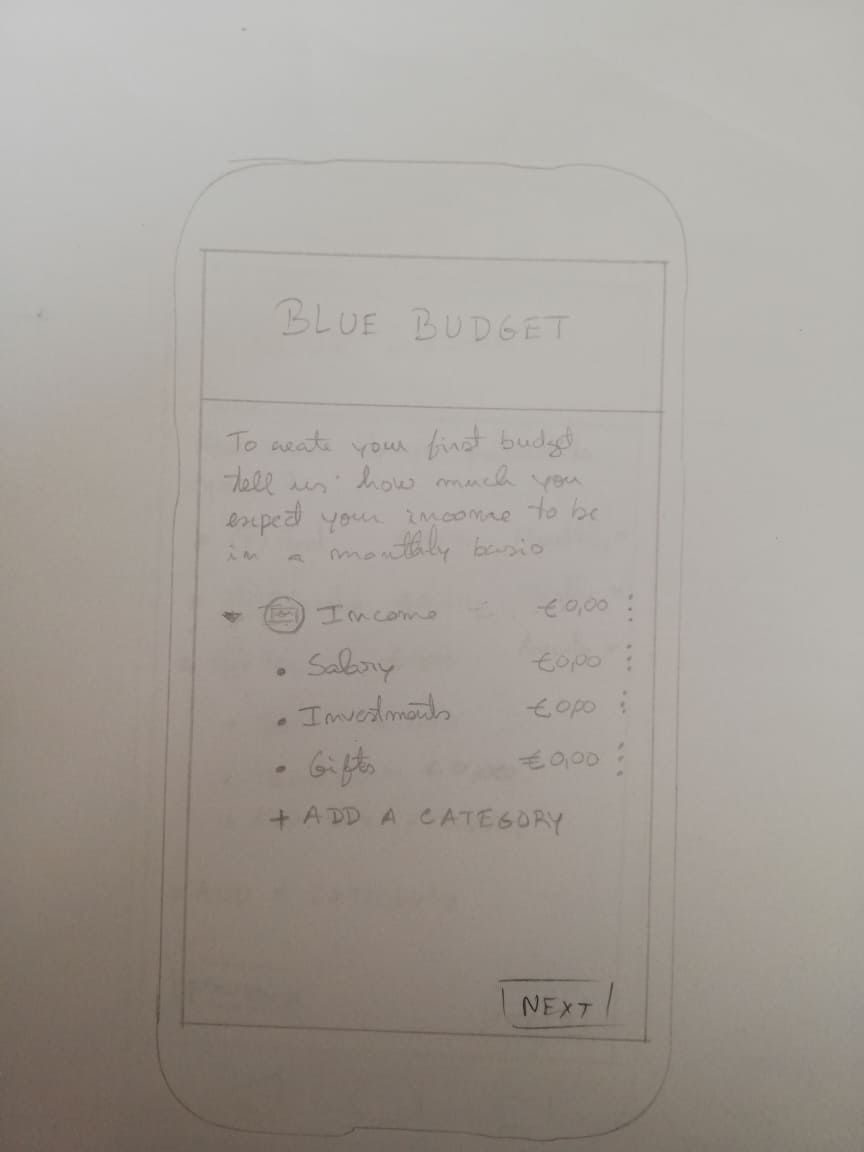 BLUE BUDGET
To create your first budget
tell us how much you
expect your income to be
in a monthly basis
Income €0,00
• Salary €0,00
• Investments €0,00
• Gifts €0,00
+ ADD A CATEGORY
NEXT